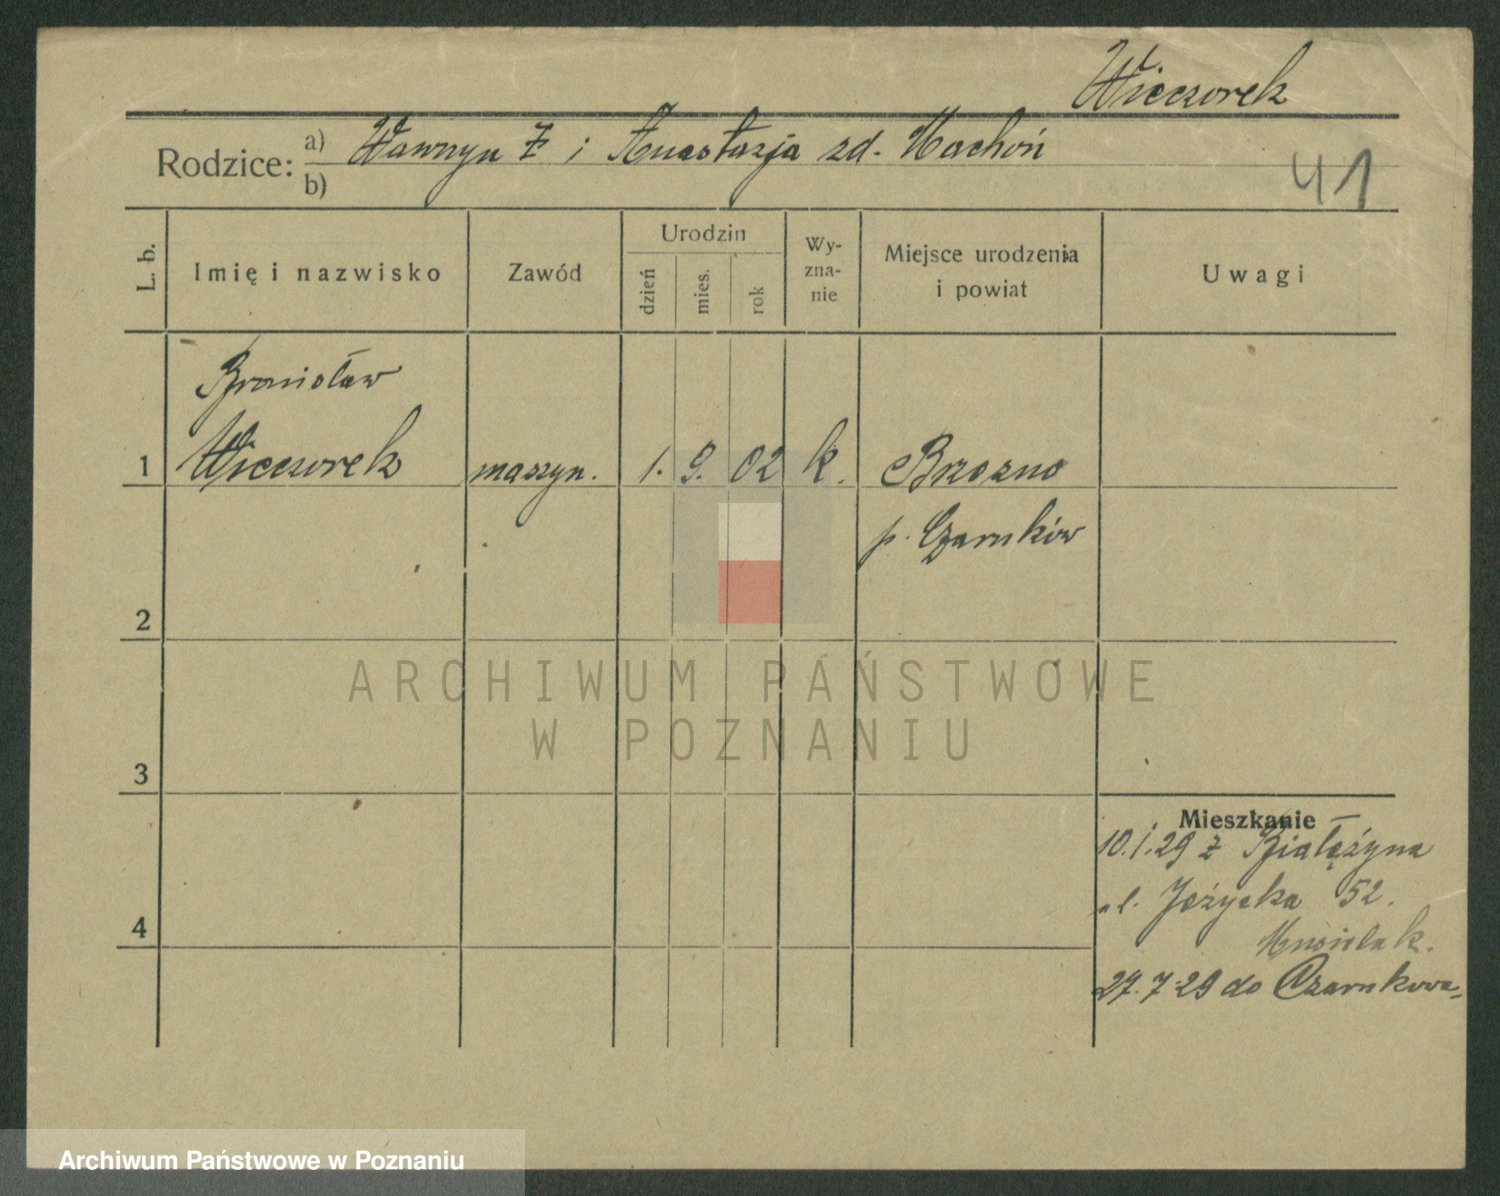 Wieczorek
Rodzice: a) Wawrzyn i Anastazja zd. Machoń
b)
41
L. b.
Imię i nazwisko
Zawód
Urodzin
dzień
mies.
rok
Wy-
zna-
nie
Miejsce urodzenia
i powiat
Uwagi
Bronisław
1 Wieczorek maszyn. 1. 9. 02 k. Brzezno
p. Czarnków
2
3
4
ARCHIWUM PAŃSTWOWE
W POZNANIU
Mieszkanie
10.1.29 z Białężyna
ul. Jeżycka 52.
Musielak.
27.7.29 do Czarnkowa
Archiwum Państwowe w Poznaniu